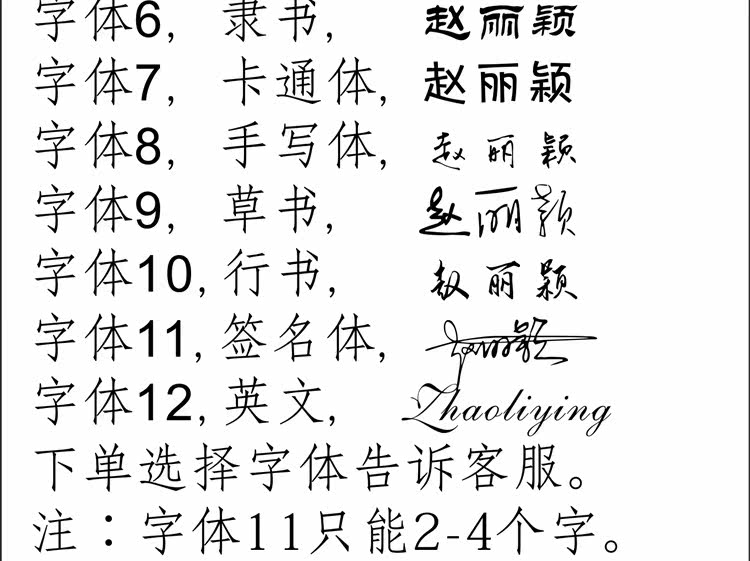 字体6, 隶书, 赵丽颖
字体7, 卡通体, 赵丽颖
字体8, 手写体, 赵丽颖
字体9, 草书, 赵丽颖
字体10,行书, 赵丽颖
字体11,签名体, 赵丽颖
字体12,英文, Zhaoliying
下单选择字体告诉客服。
注：字体11只能2-4个字。